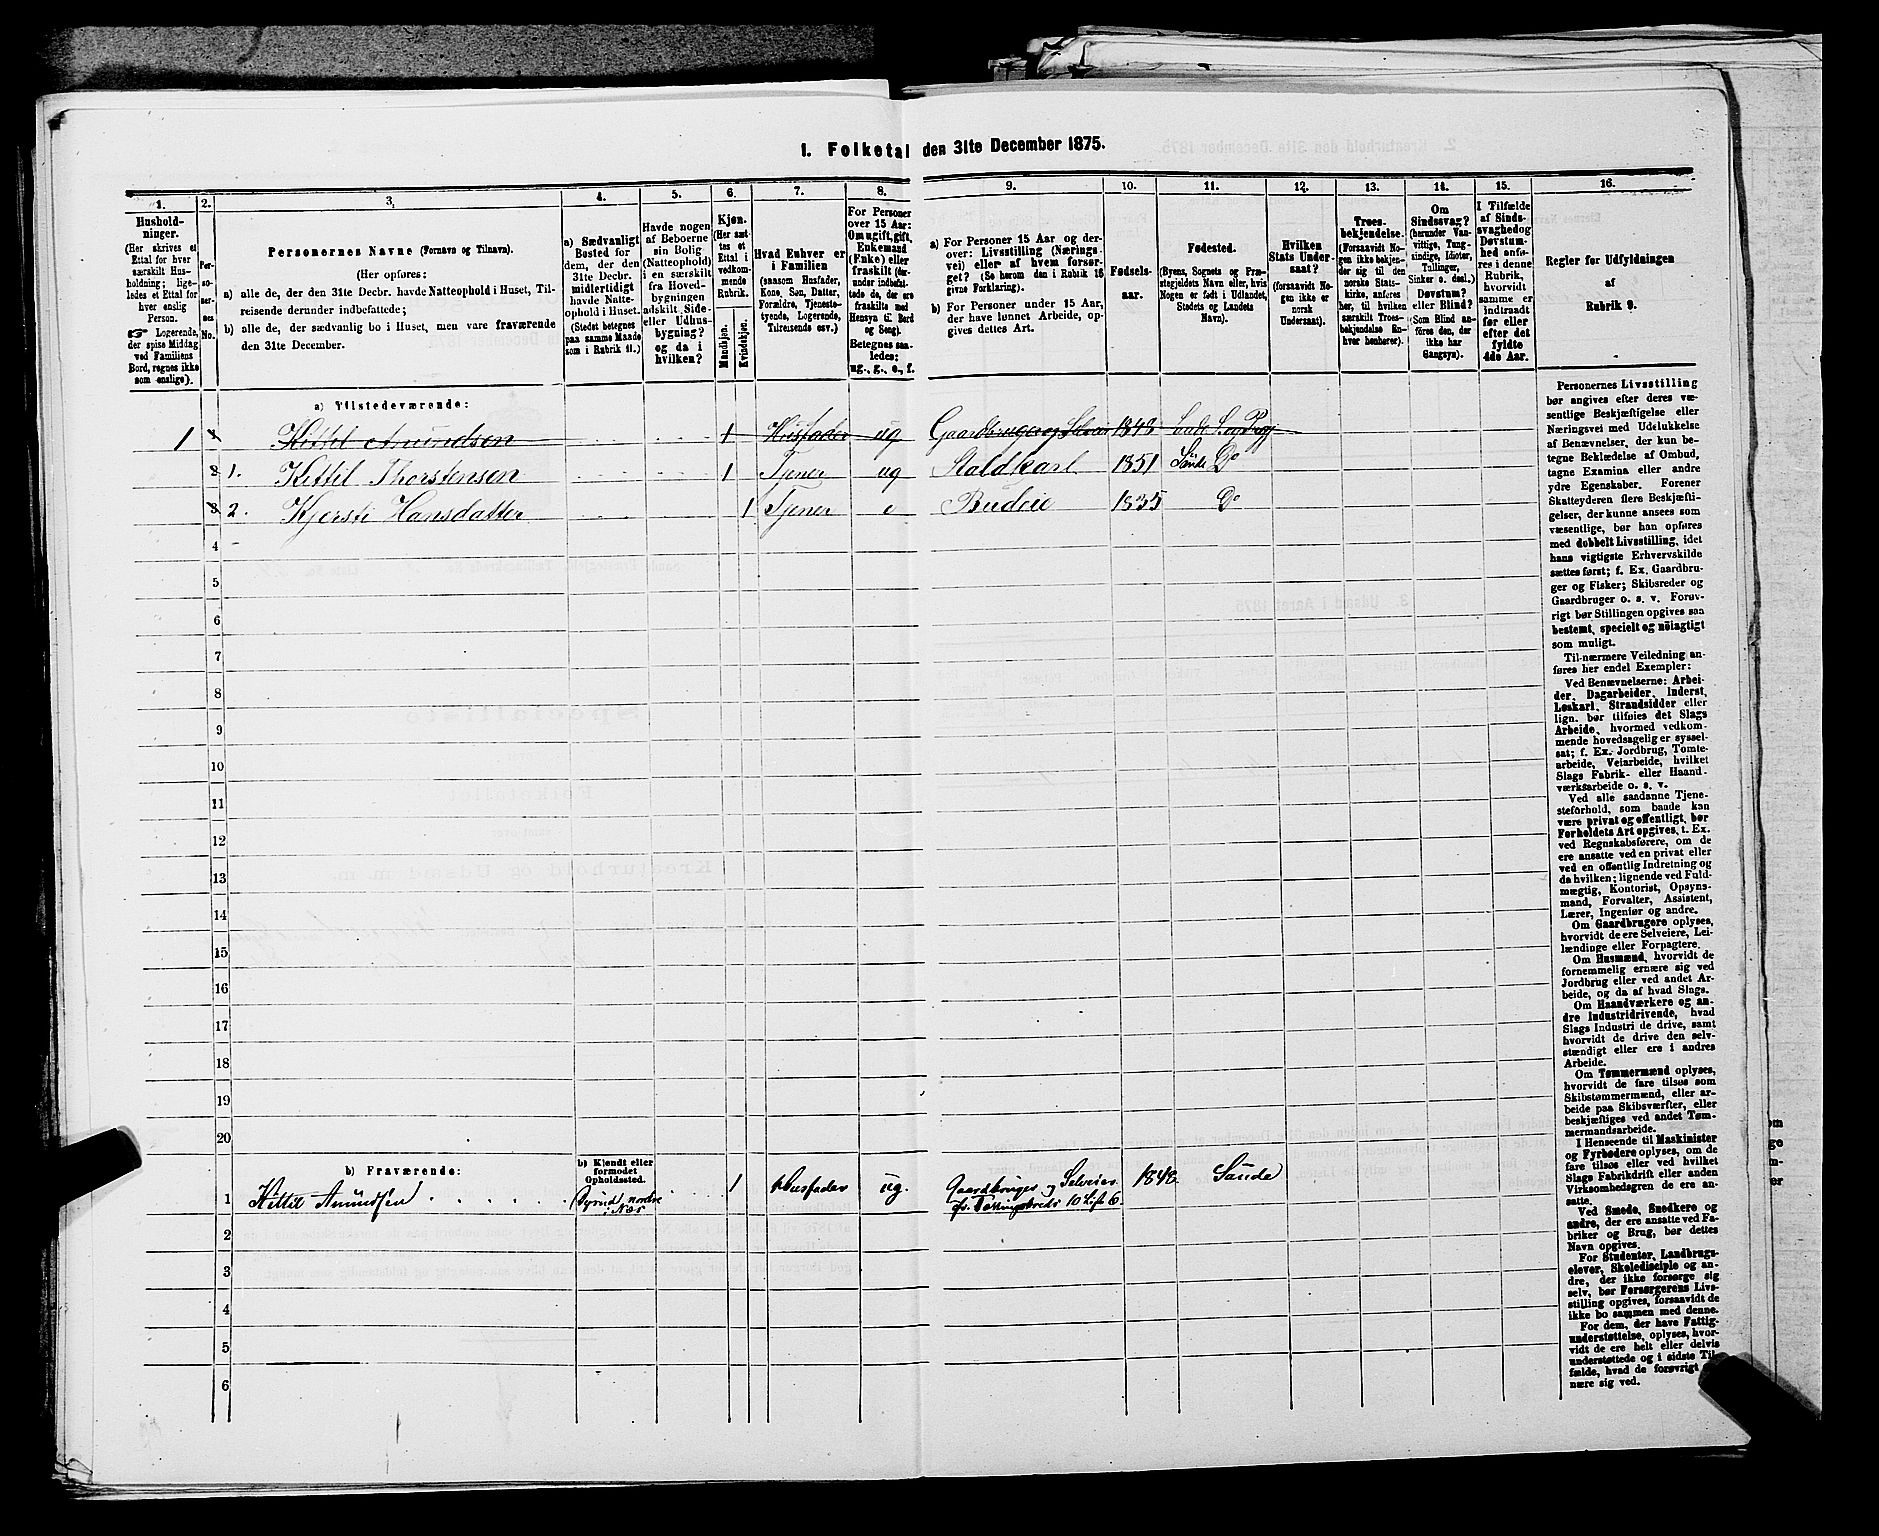 1. Folketal den 31te December 1875.
1. 2. 3. 4. 5. 6. 7. 8. 9. 10. 11. 12. 13. 14. 15. 16.
Hushold-
ninger.
(Her skrives et
Ettal for hver
særskilt Hus-
holdning; lige-
ledes et Ettal for
hver enslig
Person.
☞ Logerende,
der spise Middag
ved Familiens
Bord, regnes ikke
som enslige).
Per-
so-
ner-
nes
No.
Personernes Navne (Fornavn og Tilnavn).
(Her opføres:
a) alle de, der den 31te Decbr. havde Natteophold i Huset, Til-
reisende derunder indbefattede;
b) alle de, der sædvanlig bo i Huset, men vare fraværende
den 31te December.
a) Sædvanligt
Bosted for
dem, der den
31te Decbr.
midlertidigt
havde Natte-
ophold i Huset.
(Stedet betegnes
paa samme Maade
som i Rubrik 11.)
Havde nogen
af Beboerne
sin Bolig
(Natteophold)
i en særskilt
fra Hoved-
bygningen
adskilt Side-
eller Udhus-
bygning?
og da i
hvilken?
Kjøn.
(Her sæt-
tes et
Ettal i
vedkom-
mende
Rubrik.
Mandkjøn.
Kvindekjøn.
Hvad Enhver er
i Familien
(saasom Husfader,
Kone, Søn, Datter,
Forældre, Tjeneste-
tyende, Logerende,
Tilreisende osv.)
For Personer
over 15 Aar:
Om ugift, gift,
Enkemand
(Enke) eller
fraskilt (der-
under indbefat-
tede de, der ere
fraskilte med
Hensyn til Bord
og Seng).
Betegnes saa-
ledes:
ug., g., e., f.
a) For Personer 15 Aar og der-
over: Livsstilling (Nærings-
vei) eller af hvem forsør-
get? (Se herom den i Rubrik 16
givne Forklaring).
b) For Personer under 15 Aar,
der have lønnet Arbeide, op-
gives dettes Art.
Fødsels-
aar.
Fødested.
(Byens, Sognets og Præ-
stegjeldets Navn eller, hvis
Nogen er født i Udlandet,
Stedets og Landets
Navn).
Hvilken
Stats Under-
saat?
(forsaavidt No-
gen ikke er
norsk
Undersaat).
Troes-
bekjendelse.
(Forsaavidt No-
gen ikke bekjen-
der sig til den
norske Stats-
kirke, anføres
her, til hvilken
særskilt Troes-
bekjendelse En-
hver henhører).
Om
Sindssvag?
(herunder Van-
vittige, Tung-
sindige, Idioter,
Tullinger,
Sinker o. desl.)
Døvstum?
eller Blind?
(Som Blind an-
føres den, der
ikke har
Gangsyn).
I Tilfælde
af Sinds-
svaghed og
Døvstum-
hed anfø-
res i denne
Rubrik,
hvorvidt
samme er
indtraadt
før eller
efter det
fyldte
4de Aar.
Regler for Udfyldningen
af
Rubrik 9.
a) Tilstedeværende:
1 1 Kittil Amundsen 1 Husfader ug Gaardbruger og Selveier 1848
2 1. Kittil Thorstensen 1 Tjener ug Staldkarl 1851 Sände Do
3 2. Kjersti Hansdatter 1 Tjener e Budeie 1835 Do
4
5
6
7
8
9
10
11
12
13
14
15
16
17
18
19
20
b) Fraværende:
b) Kjendt eller
formodet
Opholdssted.
1 Kittil Amundsen nordre i Næs 1 Husfader ug. Gaardbruger og Selveier 1848 Sände
cfr. Tællingskreds 10 Liste 6.
2
3
4
5
6
Personernes Livsstilling
bør angives efter deres væ-
sentlige Beskjæftigelse eller
Næringsvei med Udelukkelse
af Benævnelser, der kun be-
tegne Beklædelse af Ombud,
tagne Examina eller andre
ydre Egenskaber. Forener
Skatteyderen flere Beskjæfti-
gelser, der kunne ansees som
væsentlige, bør han opføres
med dobbelt Livsstilling, idet
hans vigtigste Erhvervskilde
sættes først; f. Ex. Gaardbru-
ger og Fisker; Skibsreder og
Gaardbruger o. s. v. Forøv-
rigt bør Stillingen opgives saa
bestemt, specielt og nöiagtigt
som muligt.
Til nærmere Veiledning an-
føres her endel Exempler:
Ved Benævnelserne: Arbei-
der, Dagarbeider, Inderst,
Løskarl, Strandsidder eller
lign. bør tilføies det Slags
Arbeide, hvormed vedkom-
mende hovedsagelig er syssel-
sat; f. Ex. Jordbrug, Tomte-
arbeide, Veiarbeide, hvilket
Slags Fabrik- eller Haand-
værksarbeide o. s. v.
Ved alle saadanne Tjene-
steforhold, som baade kan
være privat og offentligt, bør
Forholdets Art opgives, t. Ex.
ved Regnskabsførere, om de
ere ansatte ved en privat eller
ved en offentlig Indretning og
da hvilken; lignende ved Fuld-
mægtig, Kontorist, Opsyns-
mand, Forvalter, Assistent,
Lærer, Ingeniør og andre.
Om Gaardbrugere oplyses,
hvorvidt de ere Selveiere, Lei-
lændinge eller Forpagtere.
Om Husmænd, hvorvidt de
fornemmelig ernære sig ved
Jordbrug eller ved andet Ar-
beide, og da af hvad Slags.
Om Haandværkere og an-
dre Industridrivende, hvad
Slags Industri de drive, samt
hvorvidt de drive den selv-
stændigt eller ere i andres
Arbeide.
Om Tømmermænd oplyses,
hvorvidt de fare tilsøs som
Skibstømmermænd, eller ar-
beide paa Skibsværfter, eller
beskjæftiges ved andet Tøm-
mermandsarbeide.
I Henseende til Maskinister
og Fyrbødere oplyses, om de
fare tilsøs eller ved hvilket
Slags Fabrikdrift eller anden
Virksomhed de ere an-
satte.
Ved Smede, Snedkere og
andre, der ere ansatte ved Fa-
briker og Brug, bør dettes
Navn opgives.
For Studenter, Landbrugs-
elever, Skoledisciple og an-
dre, der ikke forsørge sig
selv, bør Forsørgerens Livs-
stilling opgives, forsaavidt de
ikke bo sammen med denne.
For dem, der have Fattig-
understøttelse, oplyses, hvor-
vidt de ere helt eller delvis
understøttede og i sidste Til-
fælde, hvad de forøvrigt er-
nære sig ved.